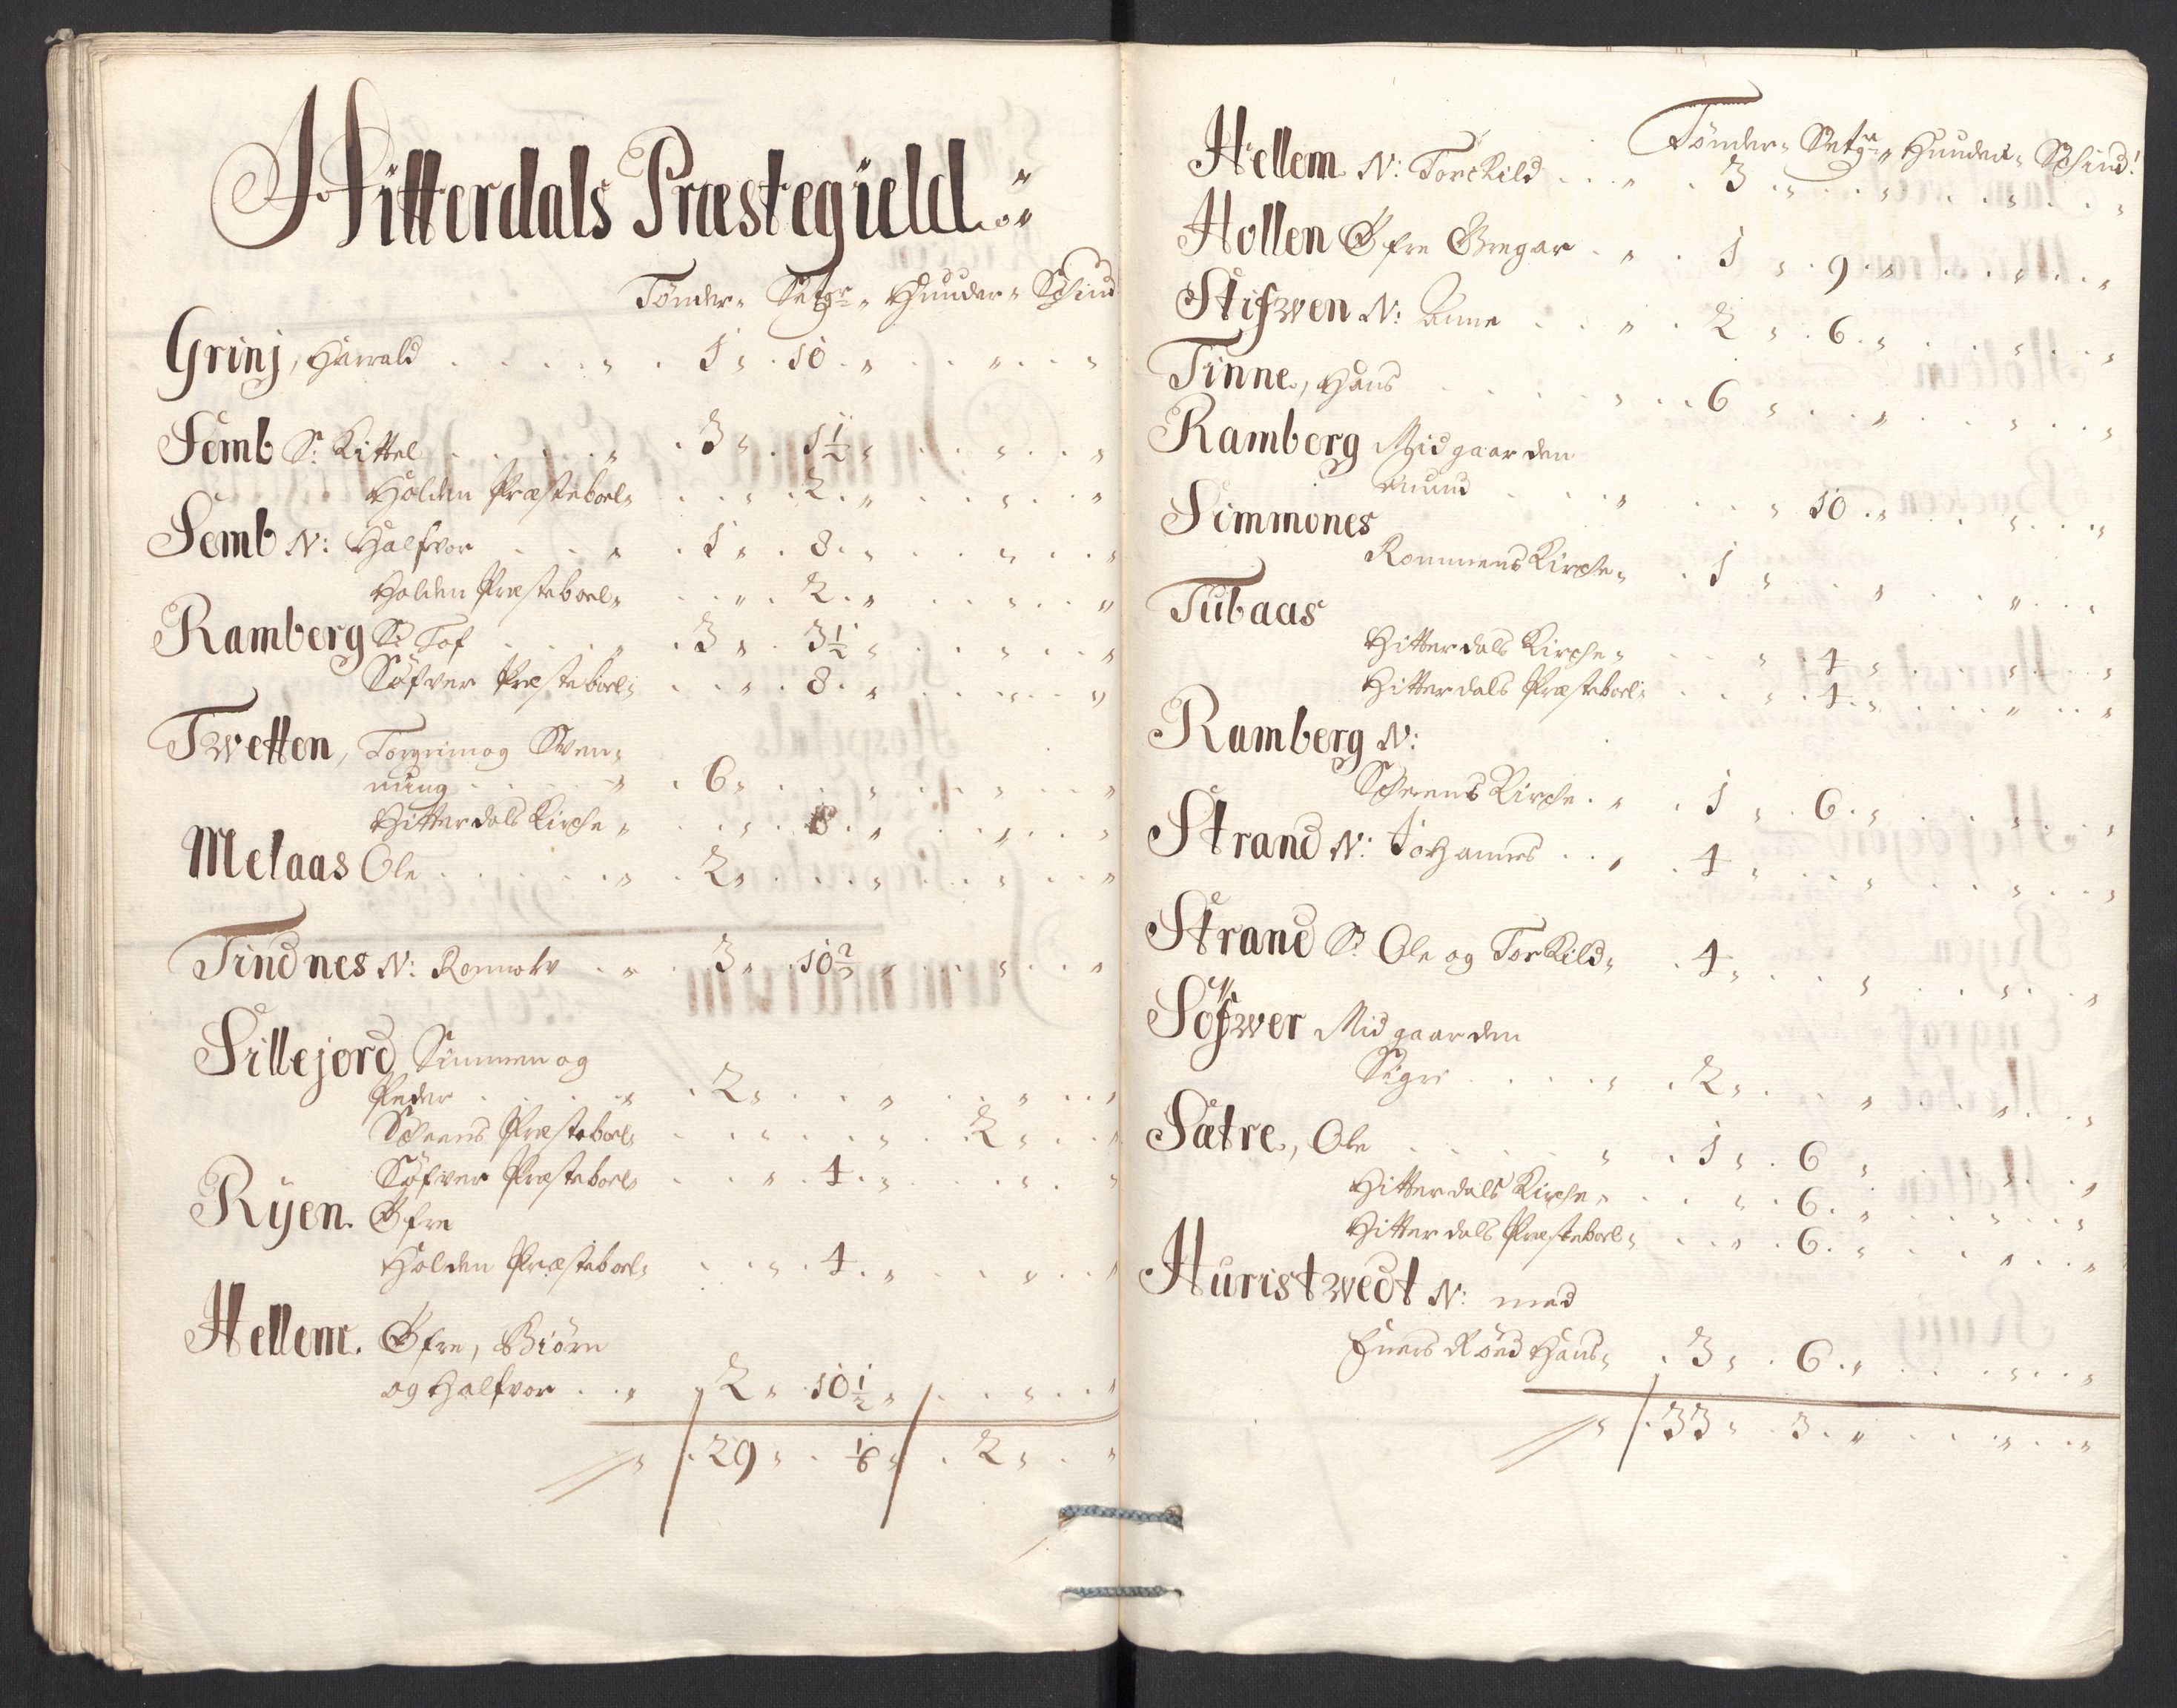 Hitterdals Præstegield
Tønder Setgr Huuder Schind
Grinj, Harrald 1 10
Semb S: Kittel 3 1½
Holden Præsteboel 2
Semb N: Halfvor 1 8
Holden Præsteboel 2
Ramberg S: Tof 3 3½
Søfver Præsteboel 8
Twetten, Torgrim og Sven
ning 6
Hitterdals Kirche 8
Melaas Ole 2
Tindnes N: 3 10⅔
Sillejord Simmen og
Peder 2
Scheens Præsteboel 2
Søfver Præsteboel 4
Ryen Øfre
Holden Præsteboel 4
Hellem Øfre, Biörn
og Halfvor 2 10½
29 ⅙ 2
Tønder Setgr Huuder Schind
Hellem N: Torckild 3
Hollen Øfre Gregar 1 9
Stifwen N: Anne 2 6
Tinne, Hans 6
Ramberg Midgaarden
Amund 10
Simmones
Rommens Kirche 1
Tubaas
Hitterdals Kirche 4
Hitterdals Præsteboel 4
Ramberg N:
Scheens Kirche 1 6
Strand N: Johannes 4
Strand S: Ole og Torkild 4
Søfwer Midgaarden
Sigri 2
Sætre, Ole 1 6
Hitterdals Kirche 6
Hitterdals Præsteboel 6
Huristwedt N: med
Røed Hans 3 6
33 3